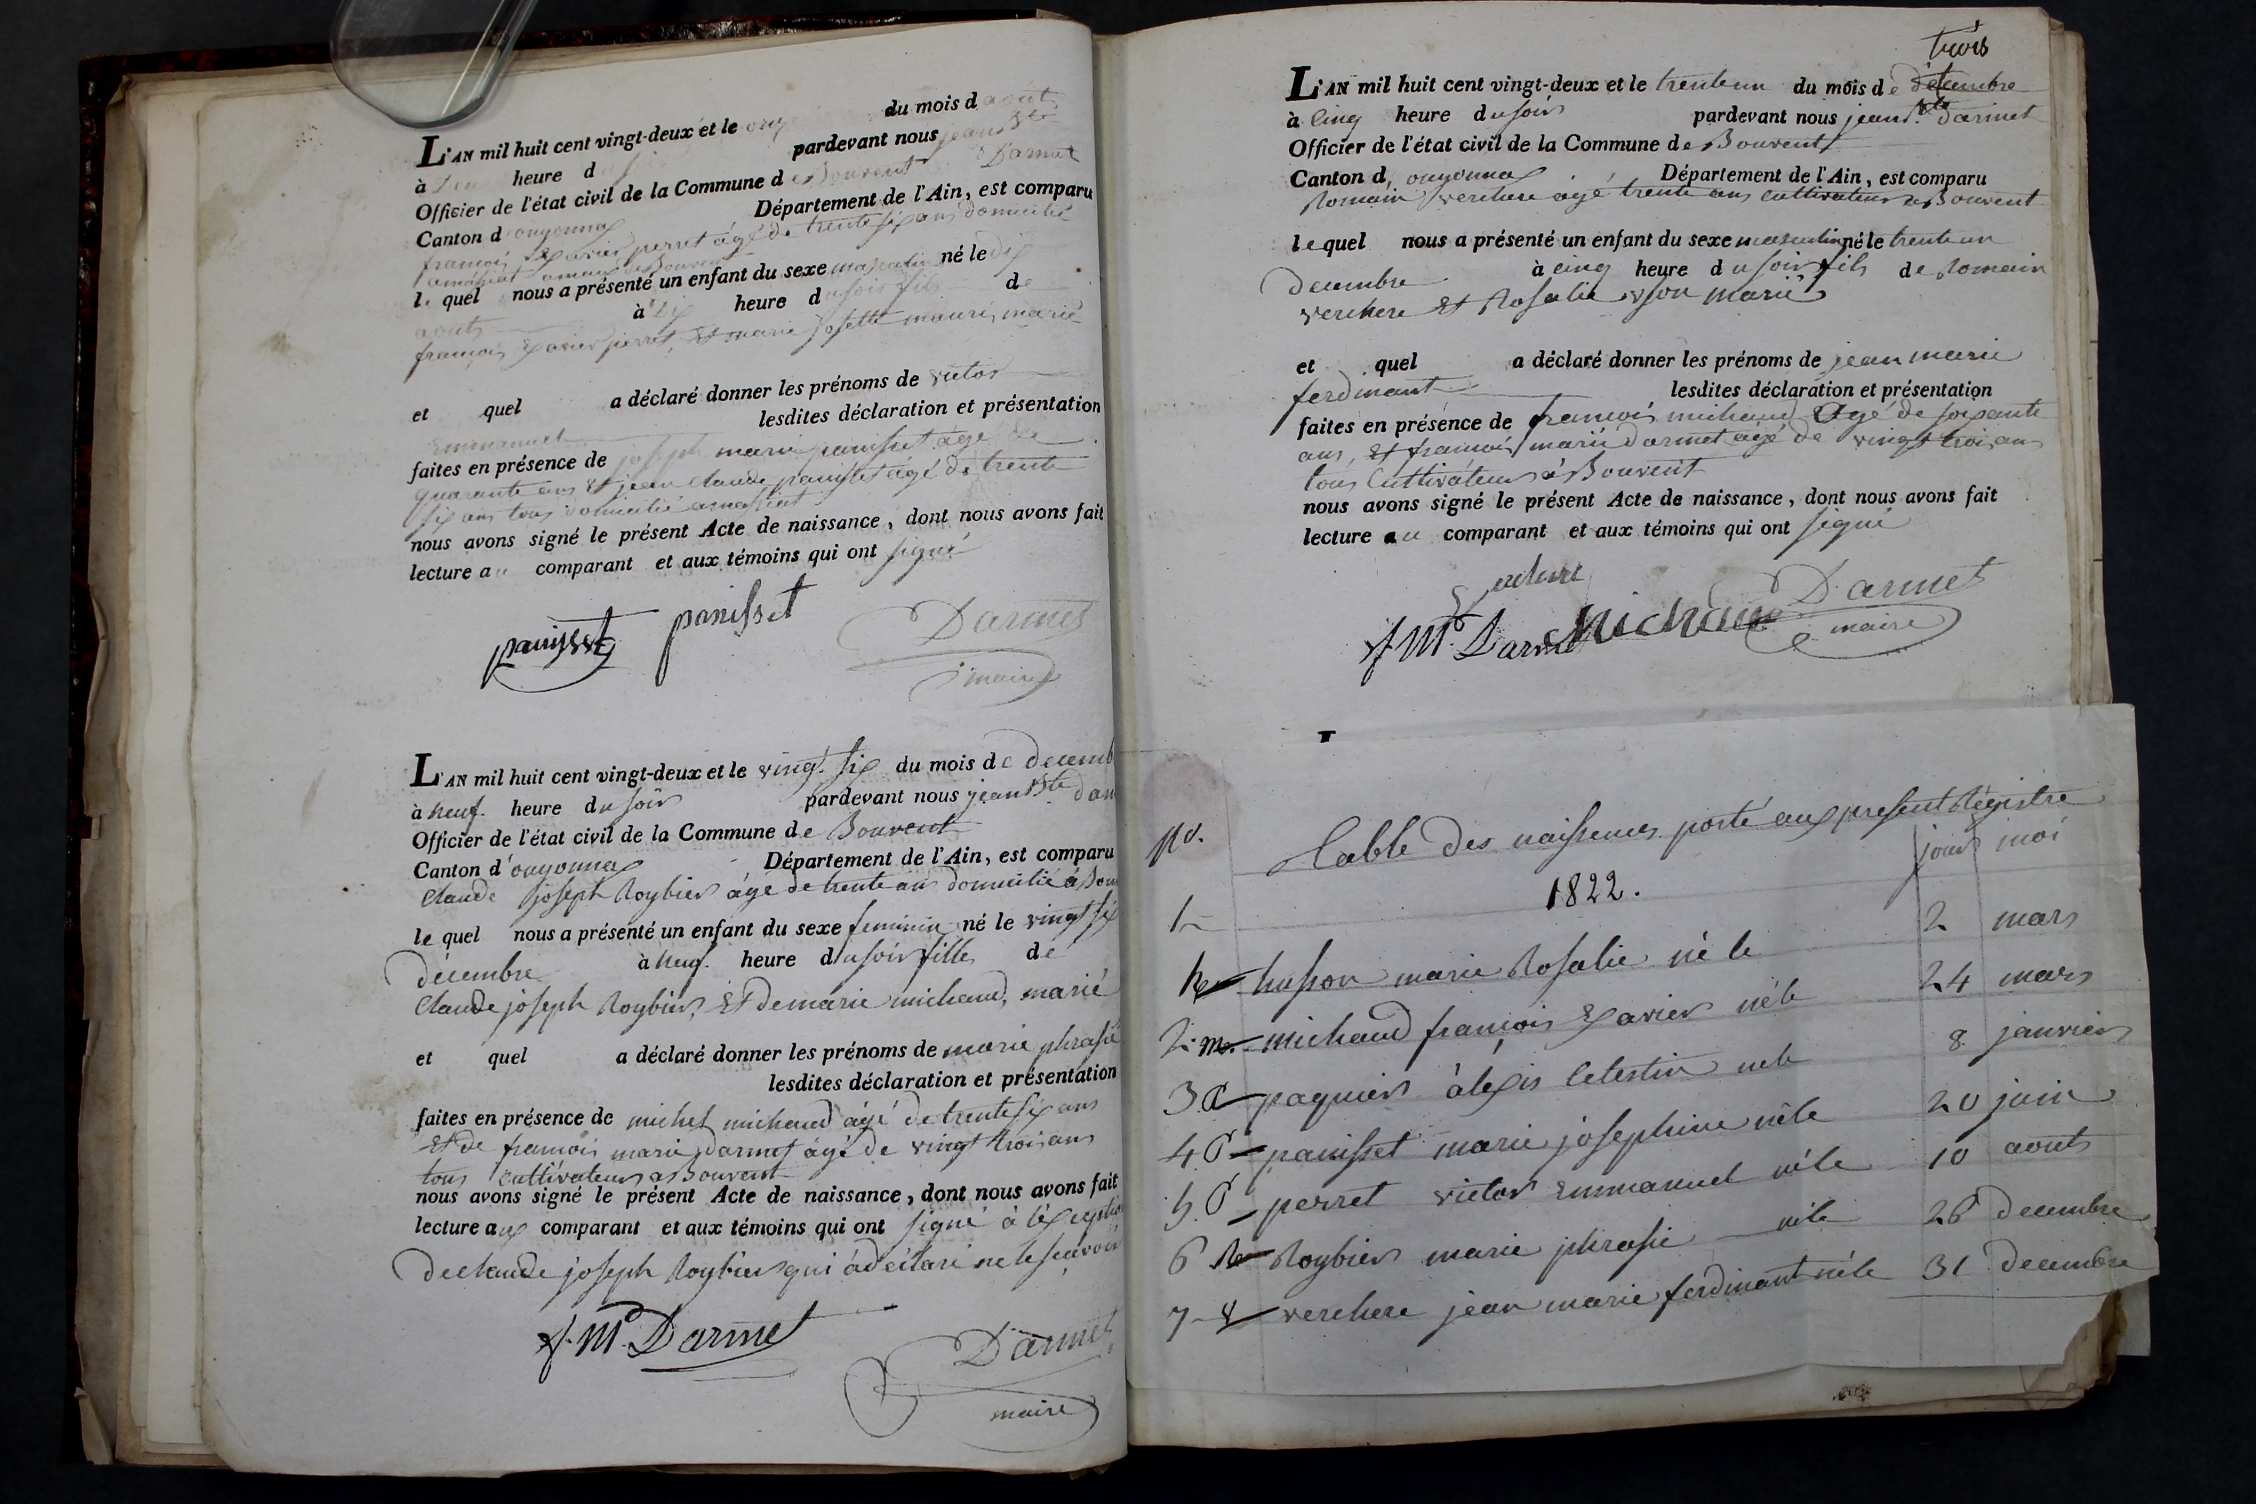 L'AN mil huit cent vingt-deux et le onze du mois d aouts
à heure d pardevant nous jean Bte Darmet
Officier de l'état civil de la Commune de Bouvent
Canton d'ouyonnax Département de l'Ain, est comparu
francois Xavier perret âgé de trente six ans domicilié
le quel nous a présenté un enfant du sexe masculin né le dix
aouts à dix heure du soir fils de
francois Xavier perret, Et marie josette mariés
et quel a déclaré donner les prénoms de victor
Emmanuel lesdites déclaration et présentation
faites en présence de joseph marie panisset âgé de
quarante ans Et jean claude panisset âgé de trente
six ans tous domicilié
nous avons signé le présent Acte de naissance, dont nous avons fait
lecture au comparant et aux témoins qui ont signé
panisset panisset Darmet
maire
L'AN mil huit cent vingt-deux et le vingt six du mois de decemb
à neuf heure du soir pardevant nous jean Bte dar
Officier de l'état civil de la Commune de Bouvent
Canton d'ouyonnax Département de l'Ain, est comparu
Claude joseph Roybier âgé de trente ans domicilié à Bou
le quel nous a présenté un enfant du sexe feminin né le vingt six
décembre à neuf heure du soir fille de
Claude joseph Roybier, Et de marie michaud, marié
et quel a déclaré donner les prénoms de marie phrasie
lesdites déclaration et présentation
faites en présence de michel michaud âgé de trente six ans
Et de francois marie darmet âgé de vingt trois ans
tous cultivateurs a Bouvent
nous avons signé le présent Acte de naissance, dont nous avons fait
lecture aux comparant et aux témoins qui ont signé à lexception
de claude joseph Roybier qui à déclaré ne le sçavoir
f. M. Darmet Darmet
maire
trois
L'AN mil huit cent vingt-deux et le trente un du mois de decembre
à cinq heure du soir pardevant nous jean Bte darmet
Officier de l'état civil de la Commune de Bouvent
Canton d ouyonnax Département de l'Ain, est comparu
Romain verchere âgé trente ans cultivateur a Bouvent
lequel nous a présenté un enfant du sexe masculin né le trente un
decembre à cinq heure du soir fils de Romain
verchere Et Rosalie marié
et quel a déclaré donner les prénoms de jean marie
ferdinant lesdites déclaration et présentation
faites en présence de francois michaud Agé de soixante
ans, Et francois marie darmet âgé de vingt trois ans
tous Cultivateurs à Bouvent
nous avons signé le présent Acte de naissance, dont nous avons fait
lecture au comparant et aux témoins qui ont signé
f. M. Darmet Michaud Darmet
maire
No. Table des naissences porté aux present Régistre
jours moi
1822.
husson marie Rosalie né le 2 mars
2. m. michaud francois Xavier né le 24 mars
3. P paquier àlexis Celestin né le 8 janvier
4. P panisset marie josephine né le 20 juin
5. P perret victor Emmanuel né le 10 aouts
6 R Roybier marie phrasie né le 26 decembre
7 - V verchere jean marie ferdinant né le 31 decembre